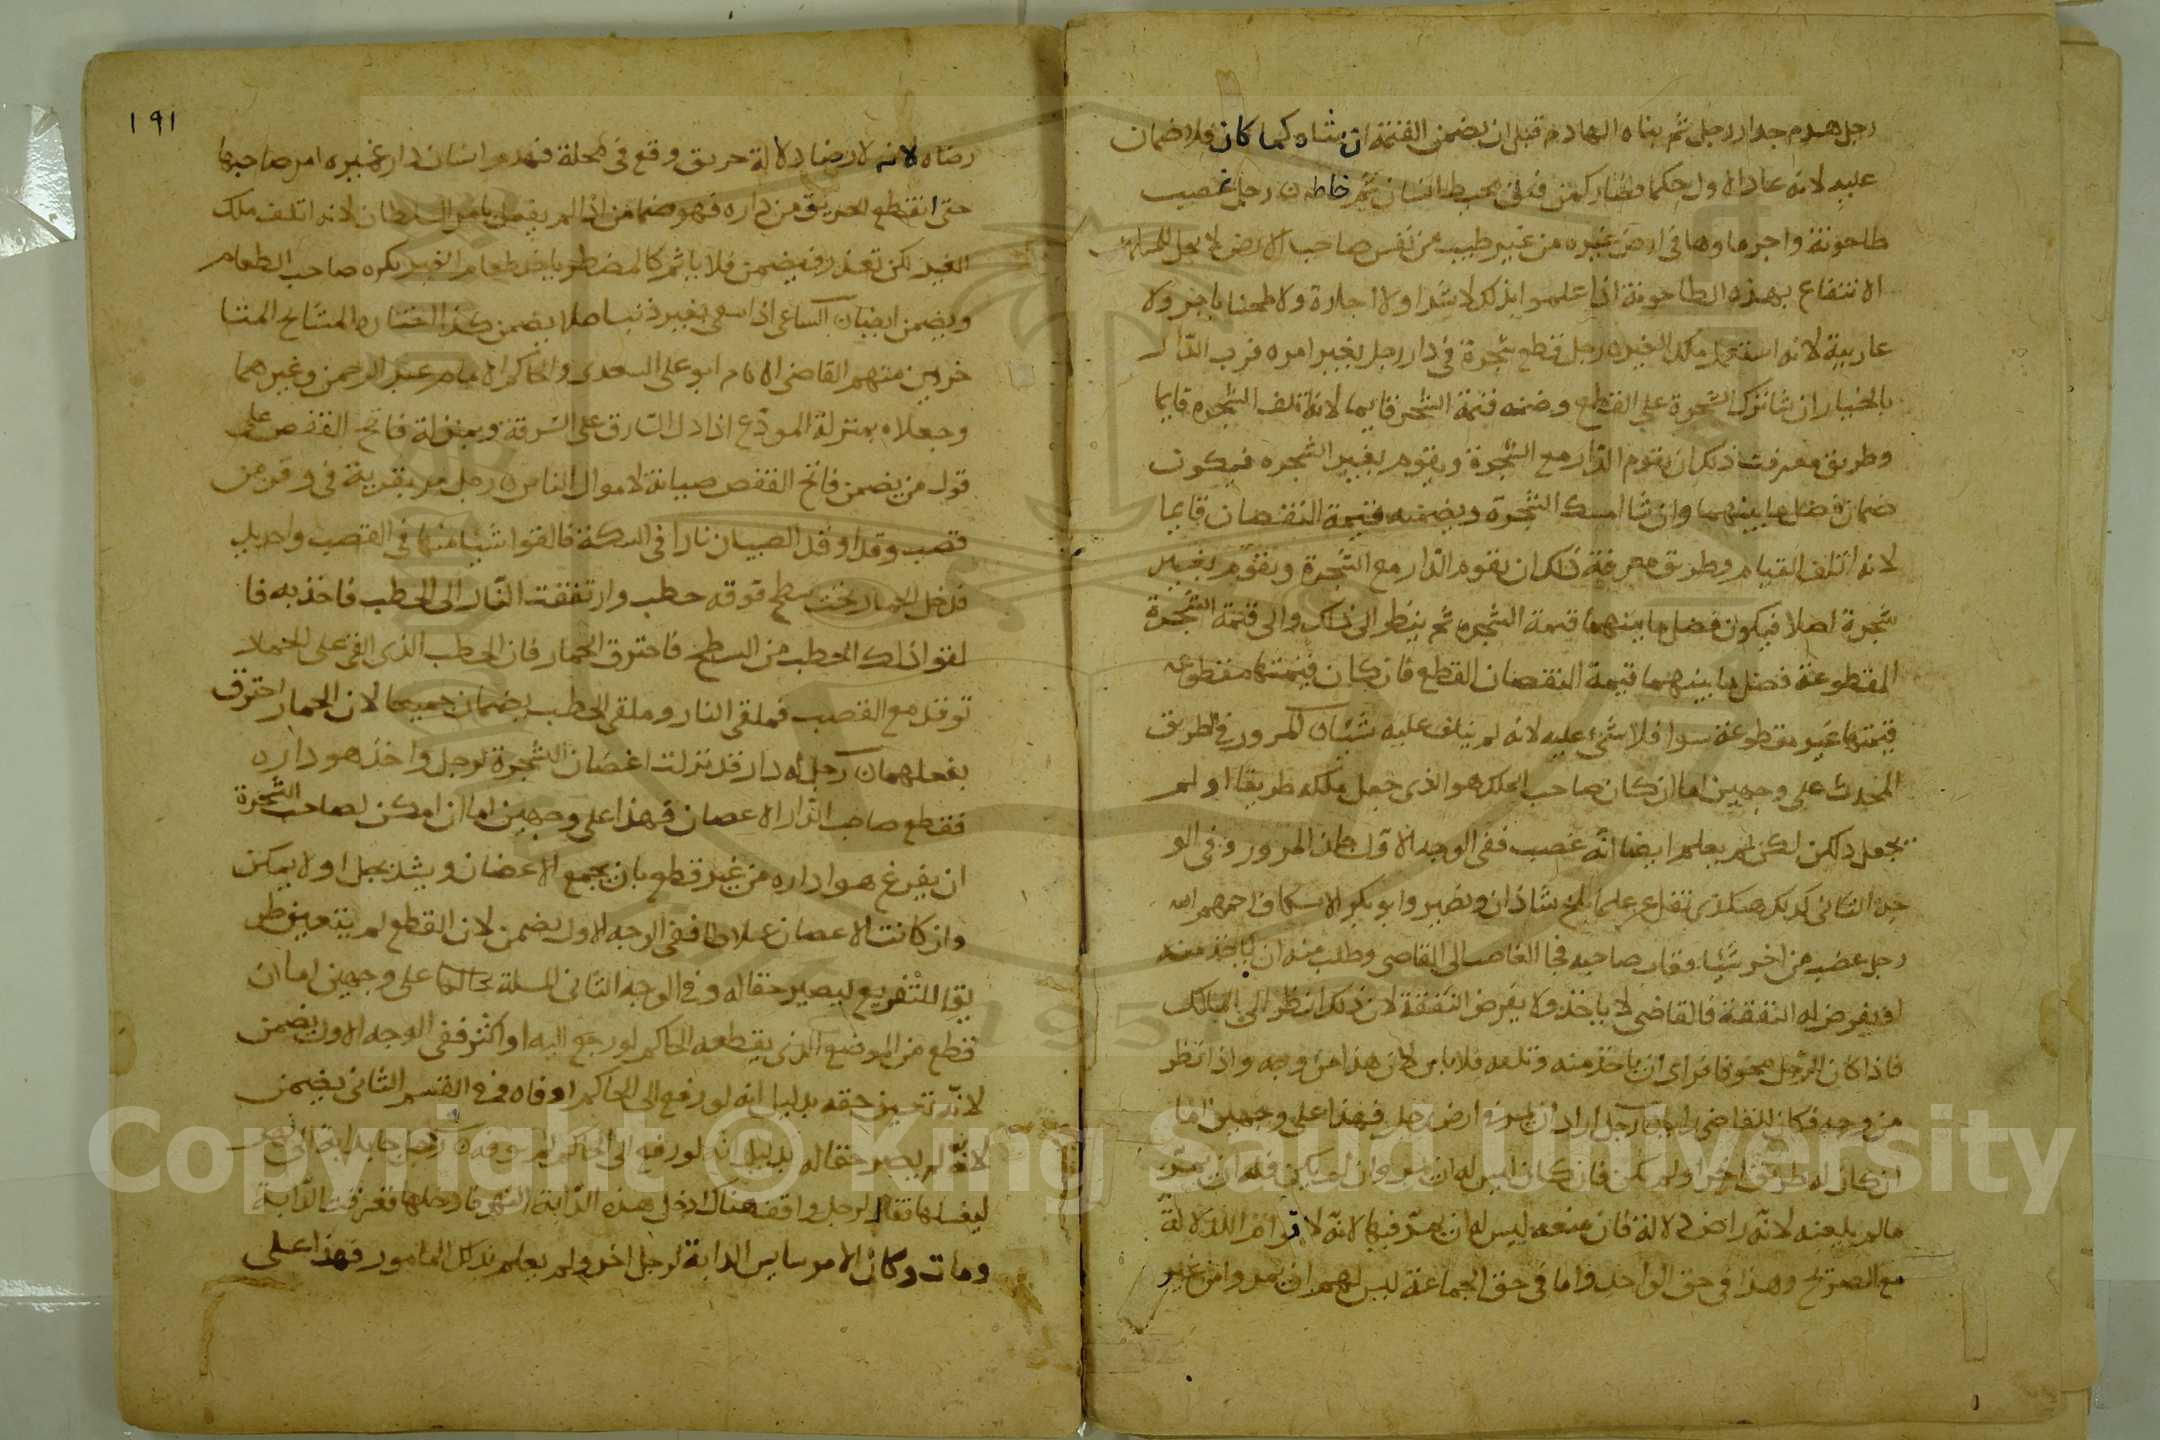 رجل هدم جدار رجل ثم بناه الهادم قبل ان يضمن القيمة ان بناه كما كان فلا ضمان
عليه لانه عاد الاول حكما فصار كمن فتق قميص انسان ثم خاطه رجل غصب
طاحونة واجر ماوها في ارض غيره من غير طيب من نفس صاحب الارض لا يحل للمسلمين
الانتفاع بهذه الطاحونة اذا علموا بذلك لا شراء ولا اجارة ولا طحنا باجر ولا
عارية لانه استعمل ملك الغير رجل قطع شجرة في دار رجل بغير امره فرب الدار
بالخيار ان شا ترك الشجرة على القاطع وضمنه قيمة الشجر قايما لانه اتلف الشجره قايما
وطريق معرفت ذلك ان يقوم الدار مع الشجرة ويقوم بغير الشجره فيكون
ضمان فضل ما بينهما وان شا امسك الشجرة ويضمنه قيمة النقصان قايما
لانه اتلف القيام وطريق معرفة ذلك ان يقوم الدار مع الشجرة ويقوم بغير
شجرة اصلا فيكون فضل ما بينهما قيمة الشجره ثم ينظر الى ذلك والى قيمة الشجرة
المقطوعة فضل ما بينهما قيمة النقصان القطع فان كان قيمتها مقطوعه
قيمتها غير مقطوعة سوا فلا شيء عليه لانه لم يتلف عليه شيئا المرور في الطريق
المحدث على وجهين اما ان كان صاحب الملك هو الذي جعل ملكه طريقا او لم
يجعل ذلك لكن لم يعلم ايضا انه غصب ففي الوجه الاول حل المرور وفي الو
جه الثاني كذلك هكذا نقل عن علما بلخ شاذان ونصير وابو بكر الاسكاف رحمهم الله
رجل غصب من اخر شيئا وغاب صاحبه فجا الغاصب الى القاضي وطلب منه ان ياخذ منه
او يفرض له النفقة فالقاضي لا ياخذ ولا يفرض النفقة لان ذلك انظر الى المالك
فاذا كان الرجل مخوفا فراى ان ياخذ منه وتلفه فلا باس لان هذا من وجه واذا نظر
من وجه فكان للقاضي راي رجل اراد ان يمر في ارض رجل فهذا على وجهين اما
ان كان له طريق اخر او لم يكن فان كان ليس له ان يمر وان لم يكن فله ان يمر
مالم يمنعه لانه راض دلالة فان منعه ليس له ان يمر فيها لانه لا قوام الدلالة
مع الصريح وهذا في حق الواحد واما في حق الجماعة ليس لهم ان يمروا من غير
١٩١
رضاه لانه لا رضا دلالة حريق وقع في محلة فهدم انسان دار غيره امر صاحبها
حتى انقطع الحريق من داره فهو ضامن اذا لم يفعل بامر السلطان لانه اتلف ملك
الغير لكن تعذر فيضمن فلا ياثم كالمضطر ياخذ طعام الغير يكره صاحب الطعام
ويضمن ايضا الساعي اذا سعى بغير ذنب اصلا يضمن كذا اختاره المشايخ المتا
خرين منهم القاضي الامام ابو علي السعدي والحاكم الامام عبد الرحمن وغيرهما
وجعلاه بمنزلة المودع اذا دل السارق على السرقة وبمنزلة فاتح القفص على
قول من يضمن فاتح القفص صيانة لاموال الناس رجل مر بقرية في وقر من
قصب وقد اوقد الصبيان نارا في السكة فالقوا شيئا منها في القصب
فدخل الحمار تحت سطح فوقه حطب وارتفعت النار الى الحطب فاخذ به فا
لقوا ذلك الحطب من السطح فاحترق الحمار فان الحطب الذي القي على الحمار
توقد مع القصب فملقي النار وملقي الحطب يضمان جميعا لان الحمار احترق
بفعلهما رجل له دار قد نزلت اغصان الشجرة لرجل واخذ هوا داره
فقطع صاحب الدار الاغصان فهذا على وجهين اما ان امكن لصاحب الشجرة
ان يفرغ هوا داره من غير قطع بان يجمع الاغصان ويشد بحبل او لا يمكن
وان كانت الاغصان غلاظا ففي الوجه الاول يضمن لان القطع لم يتعين طر
يقا للتفريغ ليصير حقا له وفي الوجه الثاني المسلة بحالها على وجهين اما ان
قطع من الموضع الذي يقطعه الحاكم لو رجع اليه او اكثر ففي الوجه الاول يضمن
لانه تعين حقه بدليل انه لو رفع الى الحاكم اوفاه وفي القسم الثاني يضمن
لانه لم يصر حقا له بدليل انه لو رفع الى الحاكم لم يوفه رجل جا بدابة الى النهر
ليغسلها فقال لرجل واقف هناك ادخل هذه الدابة النهر فادخلها فغرقت الدابة
وماتت وكان الامر سايس الدابة لرجل اخر ولم يعلم بذلك المامور فهذا على
Copyright © King Saud University
195